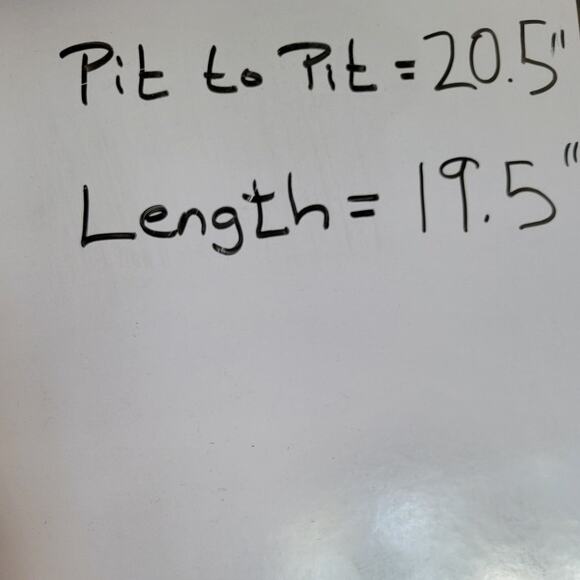 Pit to Pit = 20.5"
Length = 19.5"